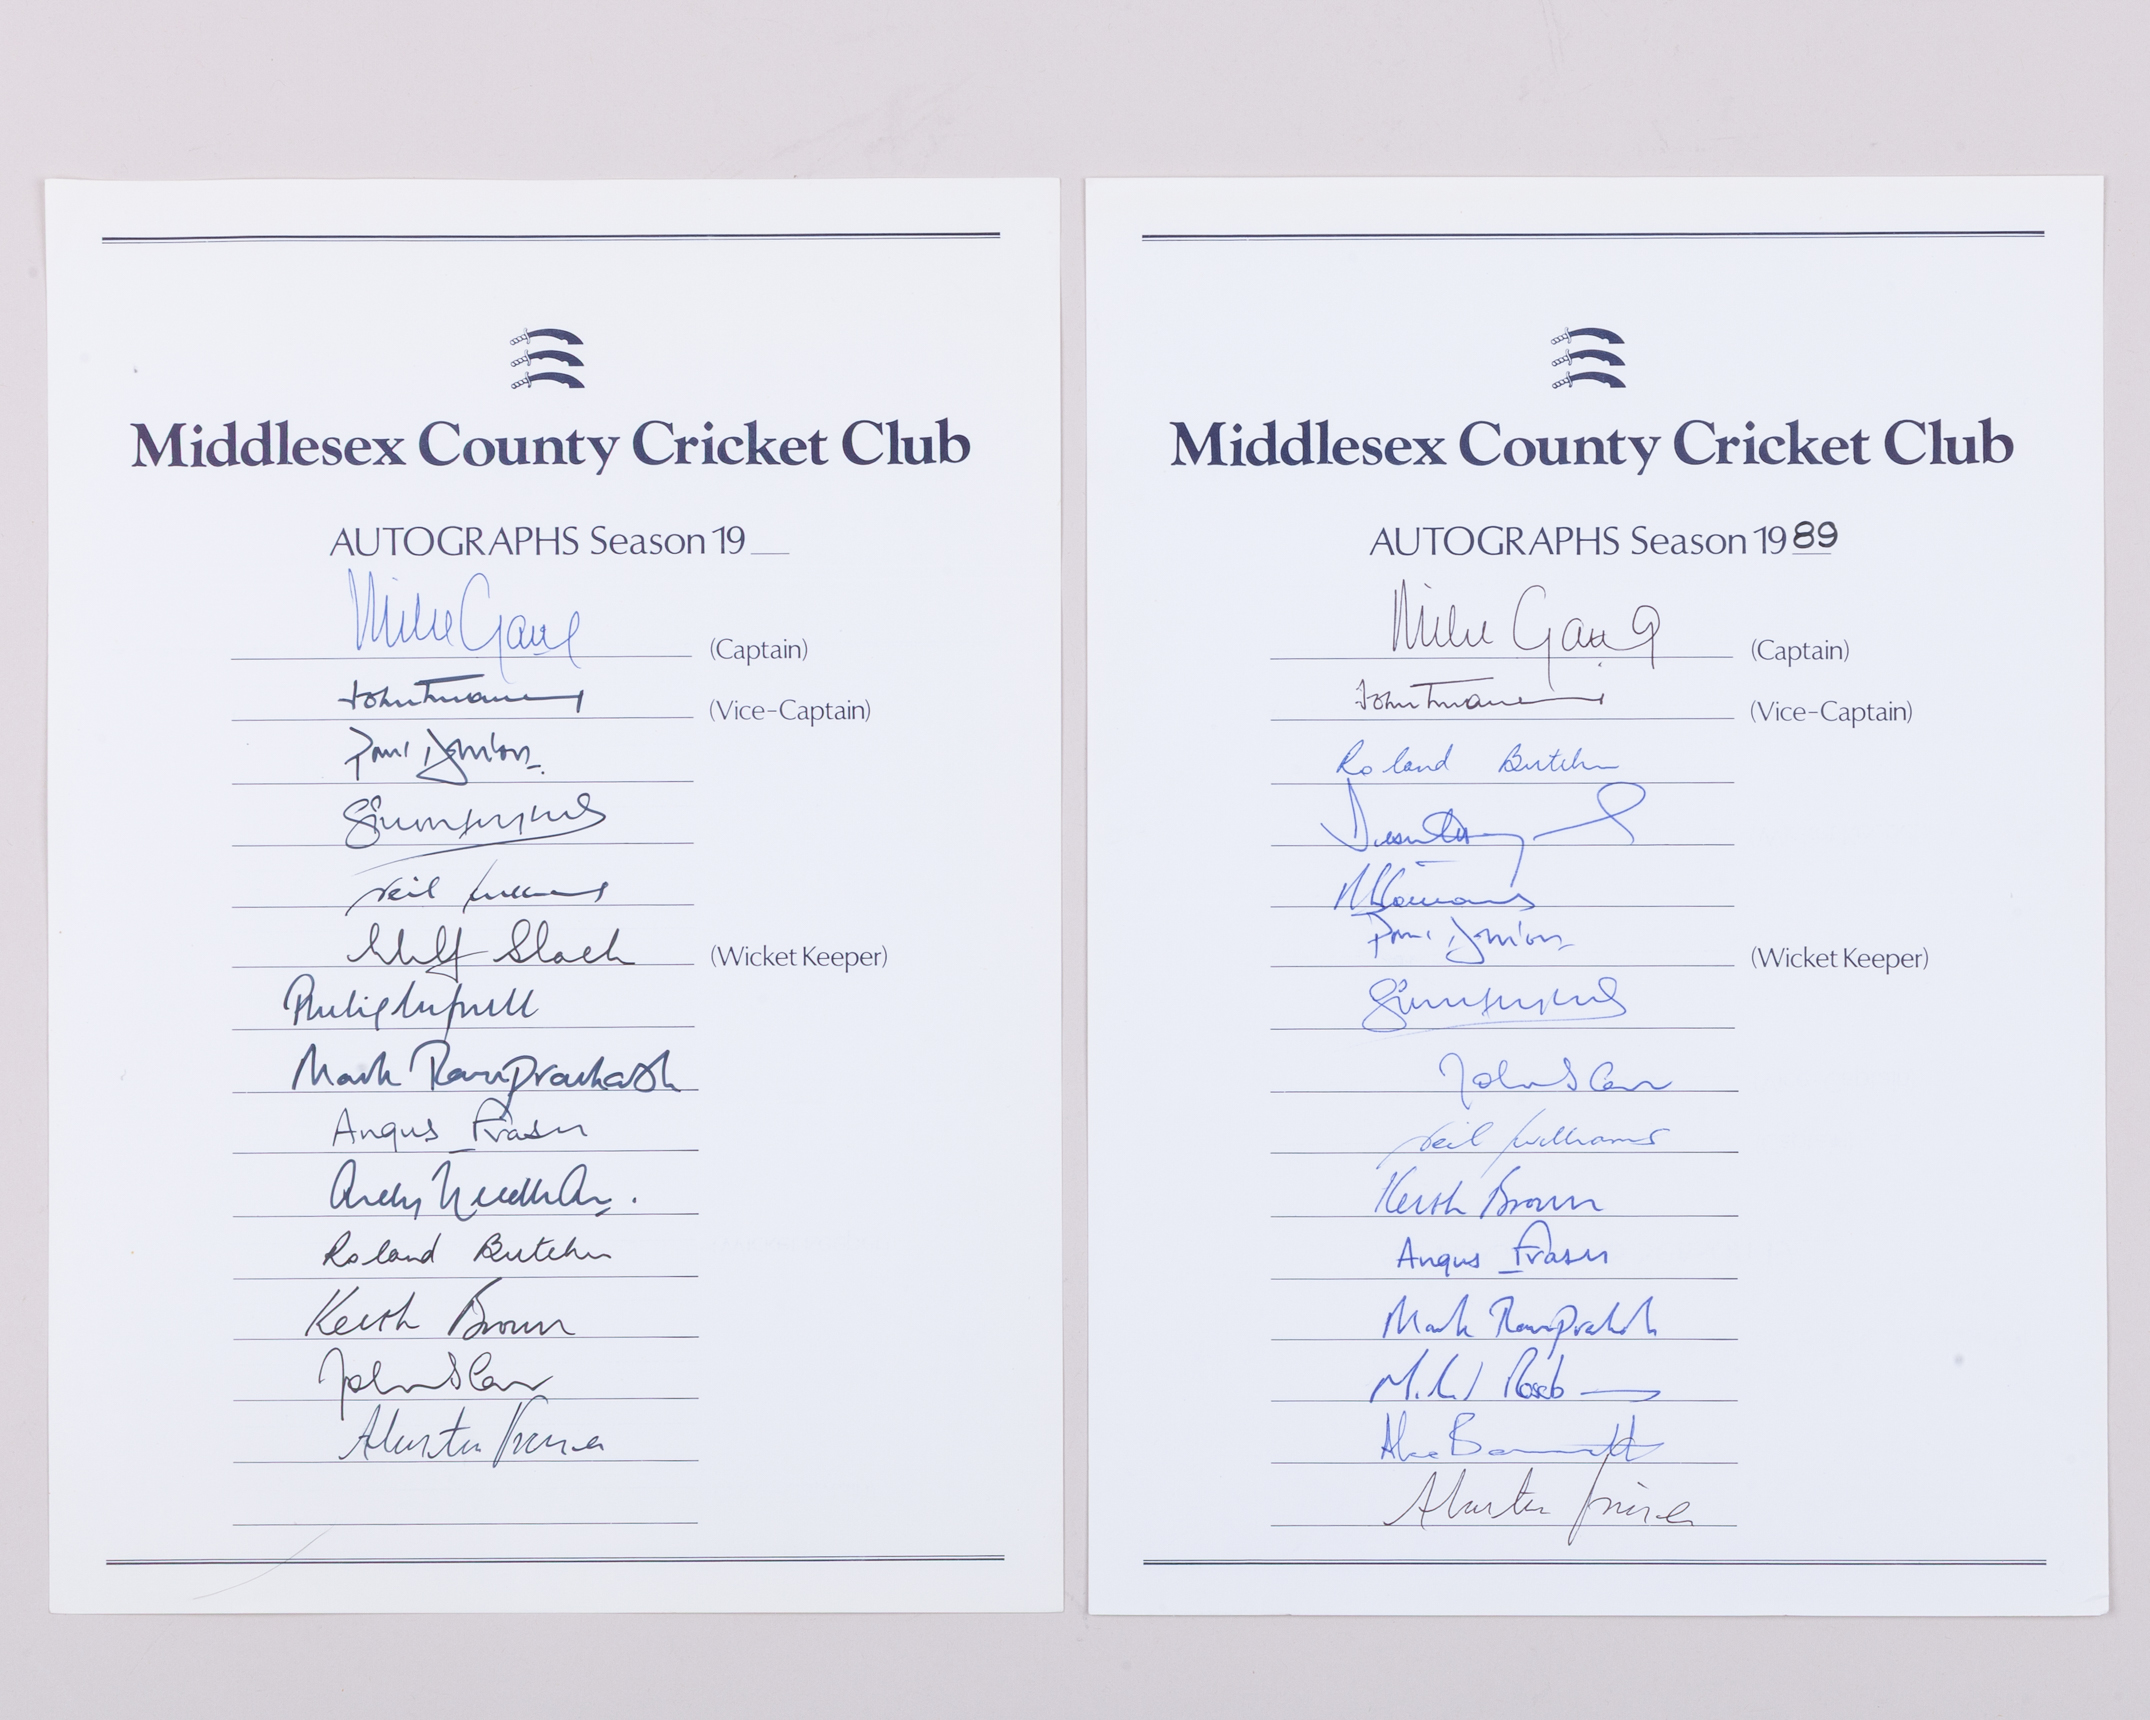 Middlesex County Cricket Club
AUTOGRAPHS Season 19__
Mike Gatting
(Captain)
John Emburey
(Vice-Captain)
Paul Downton
Simon Hughes
Neil Williams
Wilf Slack
(Wicket Keeper)
Philip Tufnell
Mark Ramprakash
Angus Fraser
Andy Needham.
Roland Butcher
Keith Brown
John D Carr
Alastair Fraser
Middlesex County Cricket Club
AUTOGRAPHS Season 1989
Mike Gatting
(Captain)
John Emburey
(Vice-Captain)
Roland Butcher
Desmond Haynes
N Cowans
Paul Downton
(Wicket Keeper)
Simon Hughes
John D Carr
Neil Williams
Keith Brown
Angus Fraser
Mark Ramprakash
Mike Roseb
Alex Barnett
Alastair Fraser